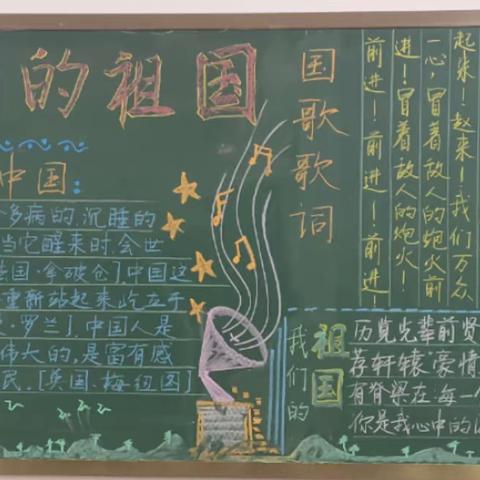 的祖国
中国:
多病的,沉睡的
当它醒来时,会世
国·拿破仑],中国这
重新站起来屹立于
·罗兰],中国人是
伟大的,是富有感
民.[英国·梅纽因]
国歌歌词
起来!起来!我们万众
一心,冒着敌人的炮火前
进!冒着敌人的炮火!
前进!前进!前进!
我们的
祖国
历览先辈前贤
荐轩辕"豪情
有脊梁在.每一
你是我心中的